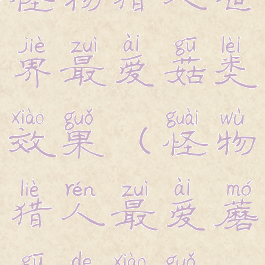 怪物猎人世
jiè zuì ài gū lèi
界最爱菇类
xiào guǒ guài wù
效果（怪物
liè rén zuì ài mó
猎人最爱蘑
gū de xiào guǒ